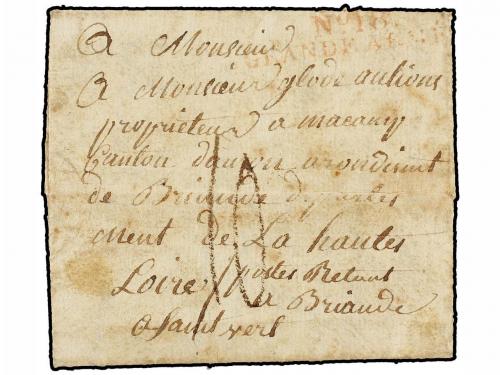 No 18.
GRANDE ARMÉE
a Monsieur
a Monsieur glode antions
proprieteur a macamp
Canton dauson arondisent
de Briande departes
ment de La hautes
Loire / postes Restant
a Briande
a Saint vert
10